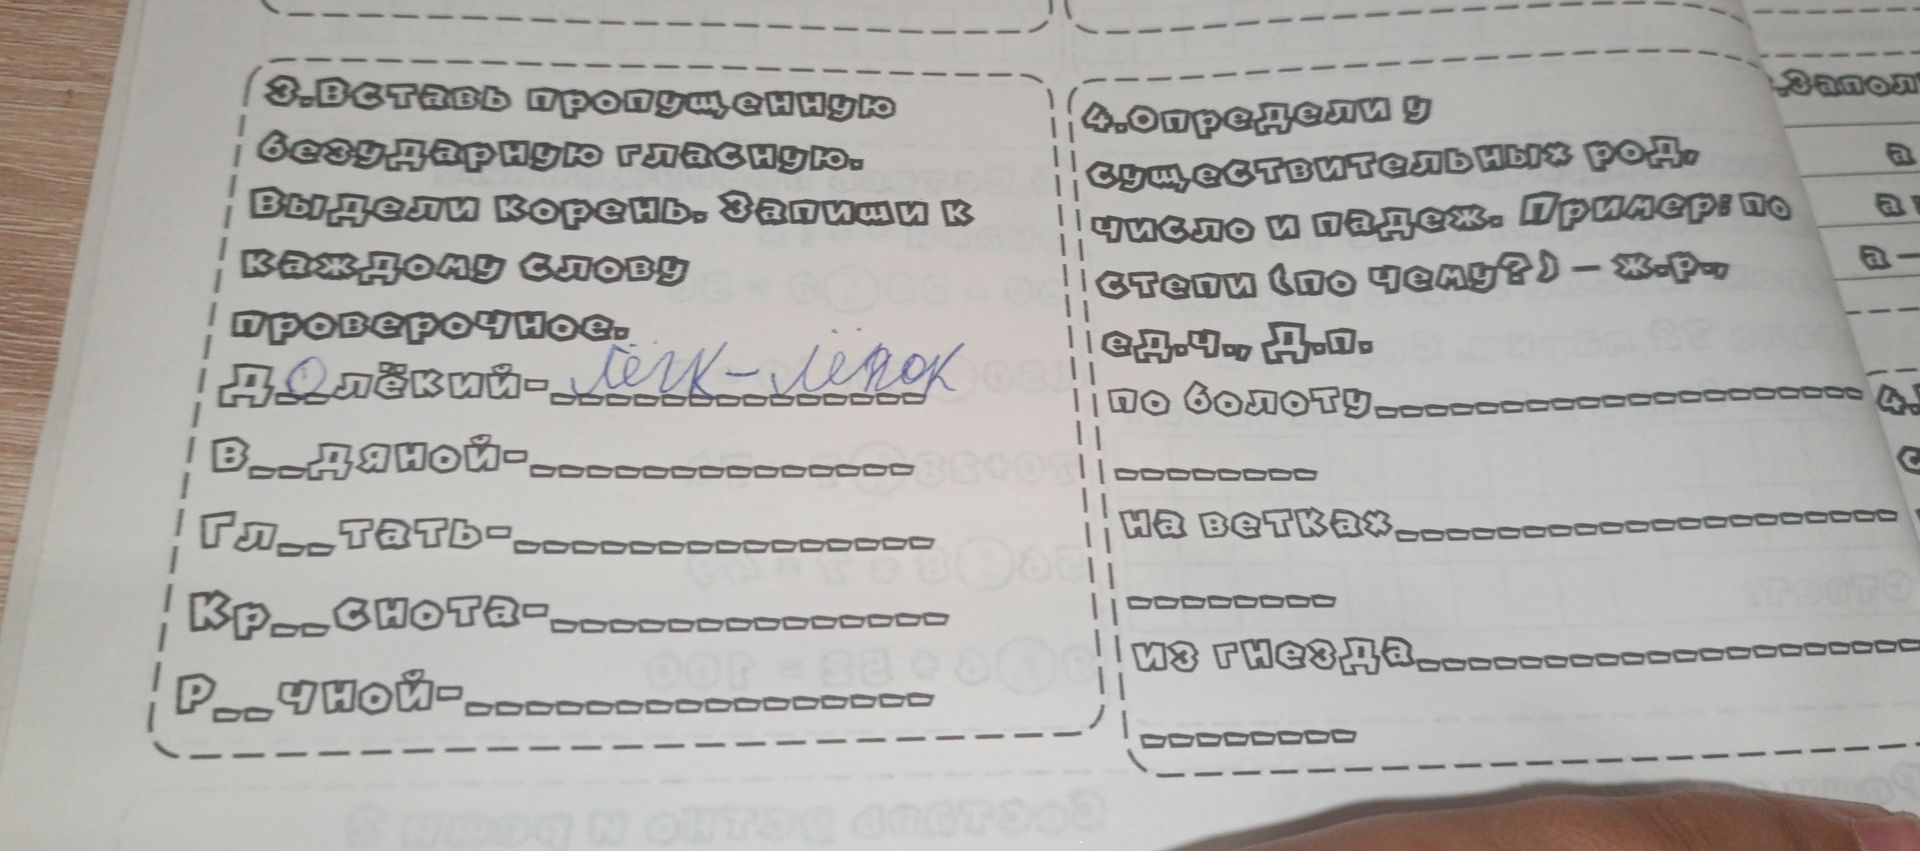 3.Вставь пропущенную
безударную гласную.
Выдели корень. Запиши к
каждому слову
проверочное.
Д_о_лёкий-Лёгк-лёпок
В__дяной-______________
Гл__тать-______________
Кр__снота-______________
Р__чной-________________
4.Определи у
существительных род,
число и падеж. Пример: по
степи (по чему?) – ж.р.,
ед.ч., Д.п.
по болоту________________
________
на ветках________________
________
из гнезда________________
________
.Запол
а
а
а –
4.
с